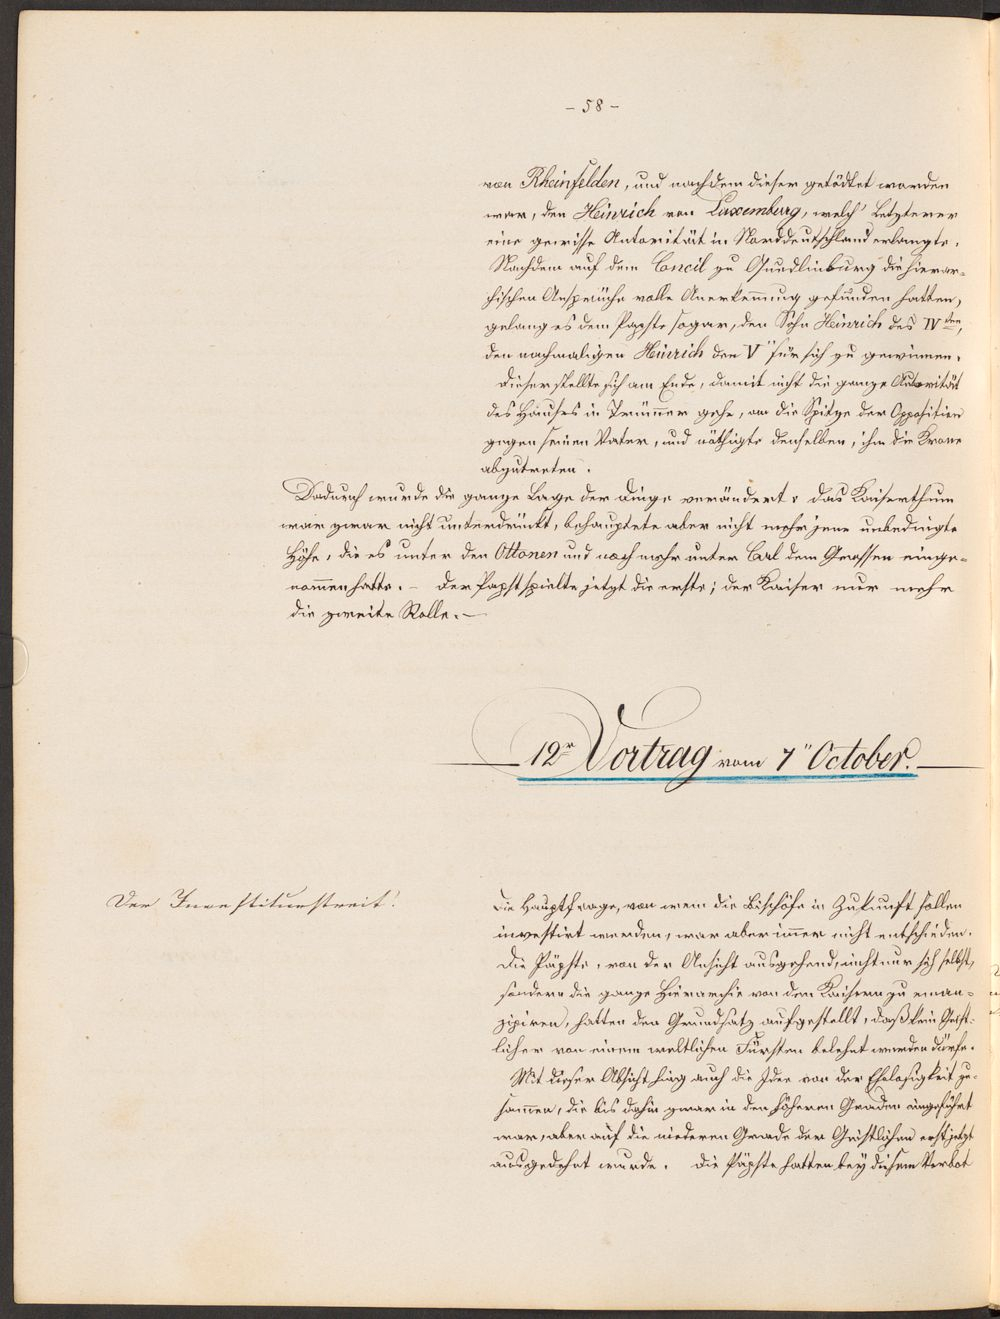 - 58 -
von Rheinfelden, und nachdem dieser getödtet worden
war, den Heinrich von Luxemburg, welch' Letzterer
eine gewisse Autorität in Norddeutschland erlangte.
Nachdem auf dem Concil zu Quedlinburg die hierar-
chischen Ansprüche volle Anerkennung gefunden hatten,
gelang es dem Papste sogar, den Sohn Heinrich des IV ten,
den nachmaligen Heinrich den V" für sich zu gewinnen.
Dieser stellte sich am Ende, damit nicht die ganze Autorität
des Hauses in Trümmer gehe, an die Spitze der Opposition
gegen seinen Vater, und nöthigte denselben, ihm die Krone
abzutreten.
Dadurch wurde die ganze Lage der Dinge verändert. Das Kaiserthum
war zwar nicht unterdrückt, behauptete aber nicht mehr jene unbedingte
Höhe, die es unter den Ottonen und noch mehr unter Carl dem Grossen einge-
nommen hatte. – Der Papst spielte jetzt die erste; der Kaiser nur mehr
die zweite Rolle. –
12r Vortrag vom 7" October.
Der Investiturstreit!
Die Hauptfrage, von wem die Bischöfe in Zukunft sollen
investirt werden, war aber immer nicht entschieden.
Die Päpste, von der Ansicht ausgehend, nicht nur sich selbst,
sondern die ganze Hierarchie von den Kaisern zu eman-
zipiren, hatten den Grundsatz aufgestellt, daß kein Geist-
licher von einem weltlichen Fürsten belehnt werden dürfe.
Mit dieser Absicht hing auch die Idee von der Ehelosigkeit zu-
sammen, die bis dahin zwar in den höheren Graden eingeführt
war, aber auf die niederen Grade der Geistlichen erst jetzt
ausgedehnt wurde. Die Päpste hatten bey diesem Verbot